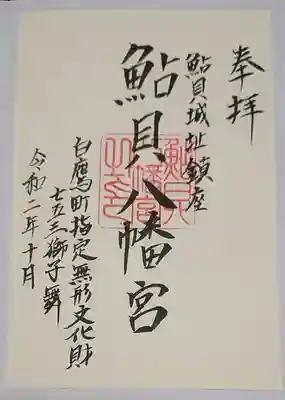 奉拝
鮎貝城址鎮座
鮎貝八幡宮
白鷹町指定無形文化財
七五三獅子舞
令和二年十月